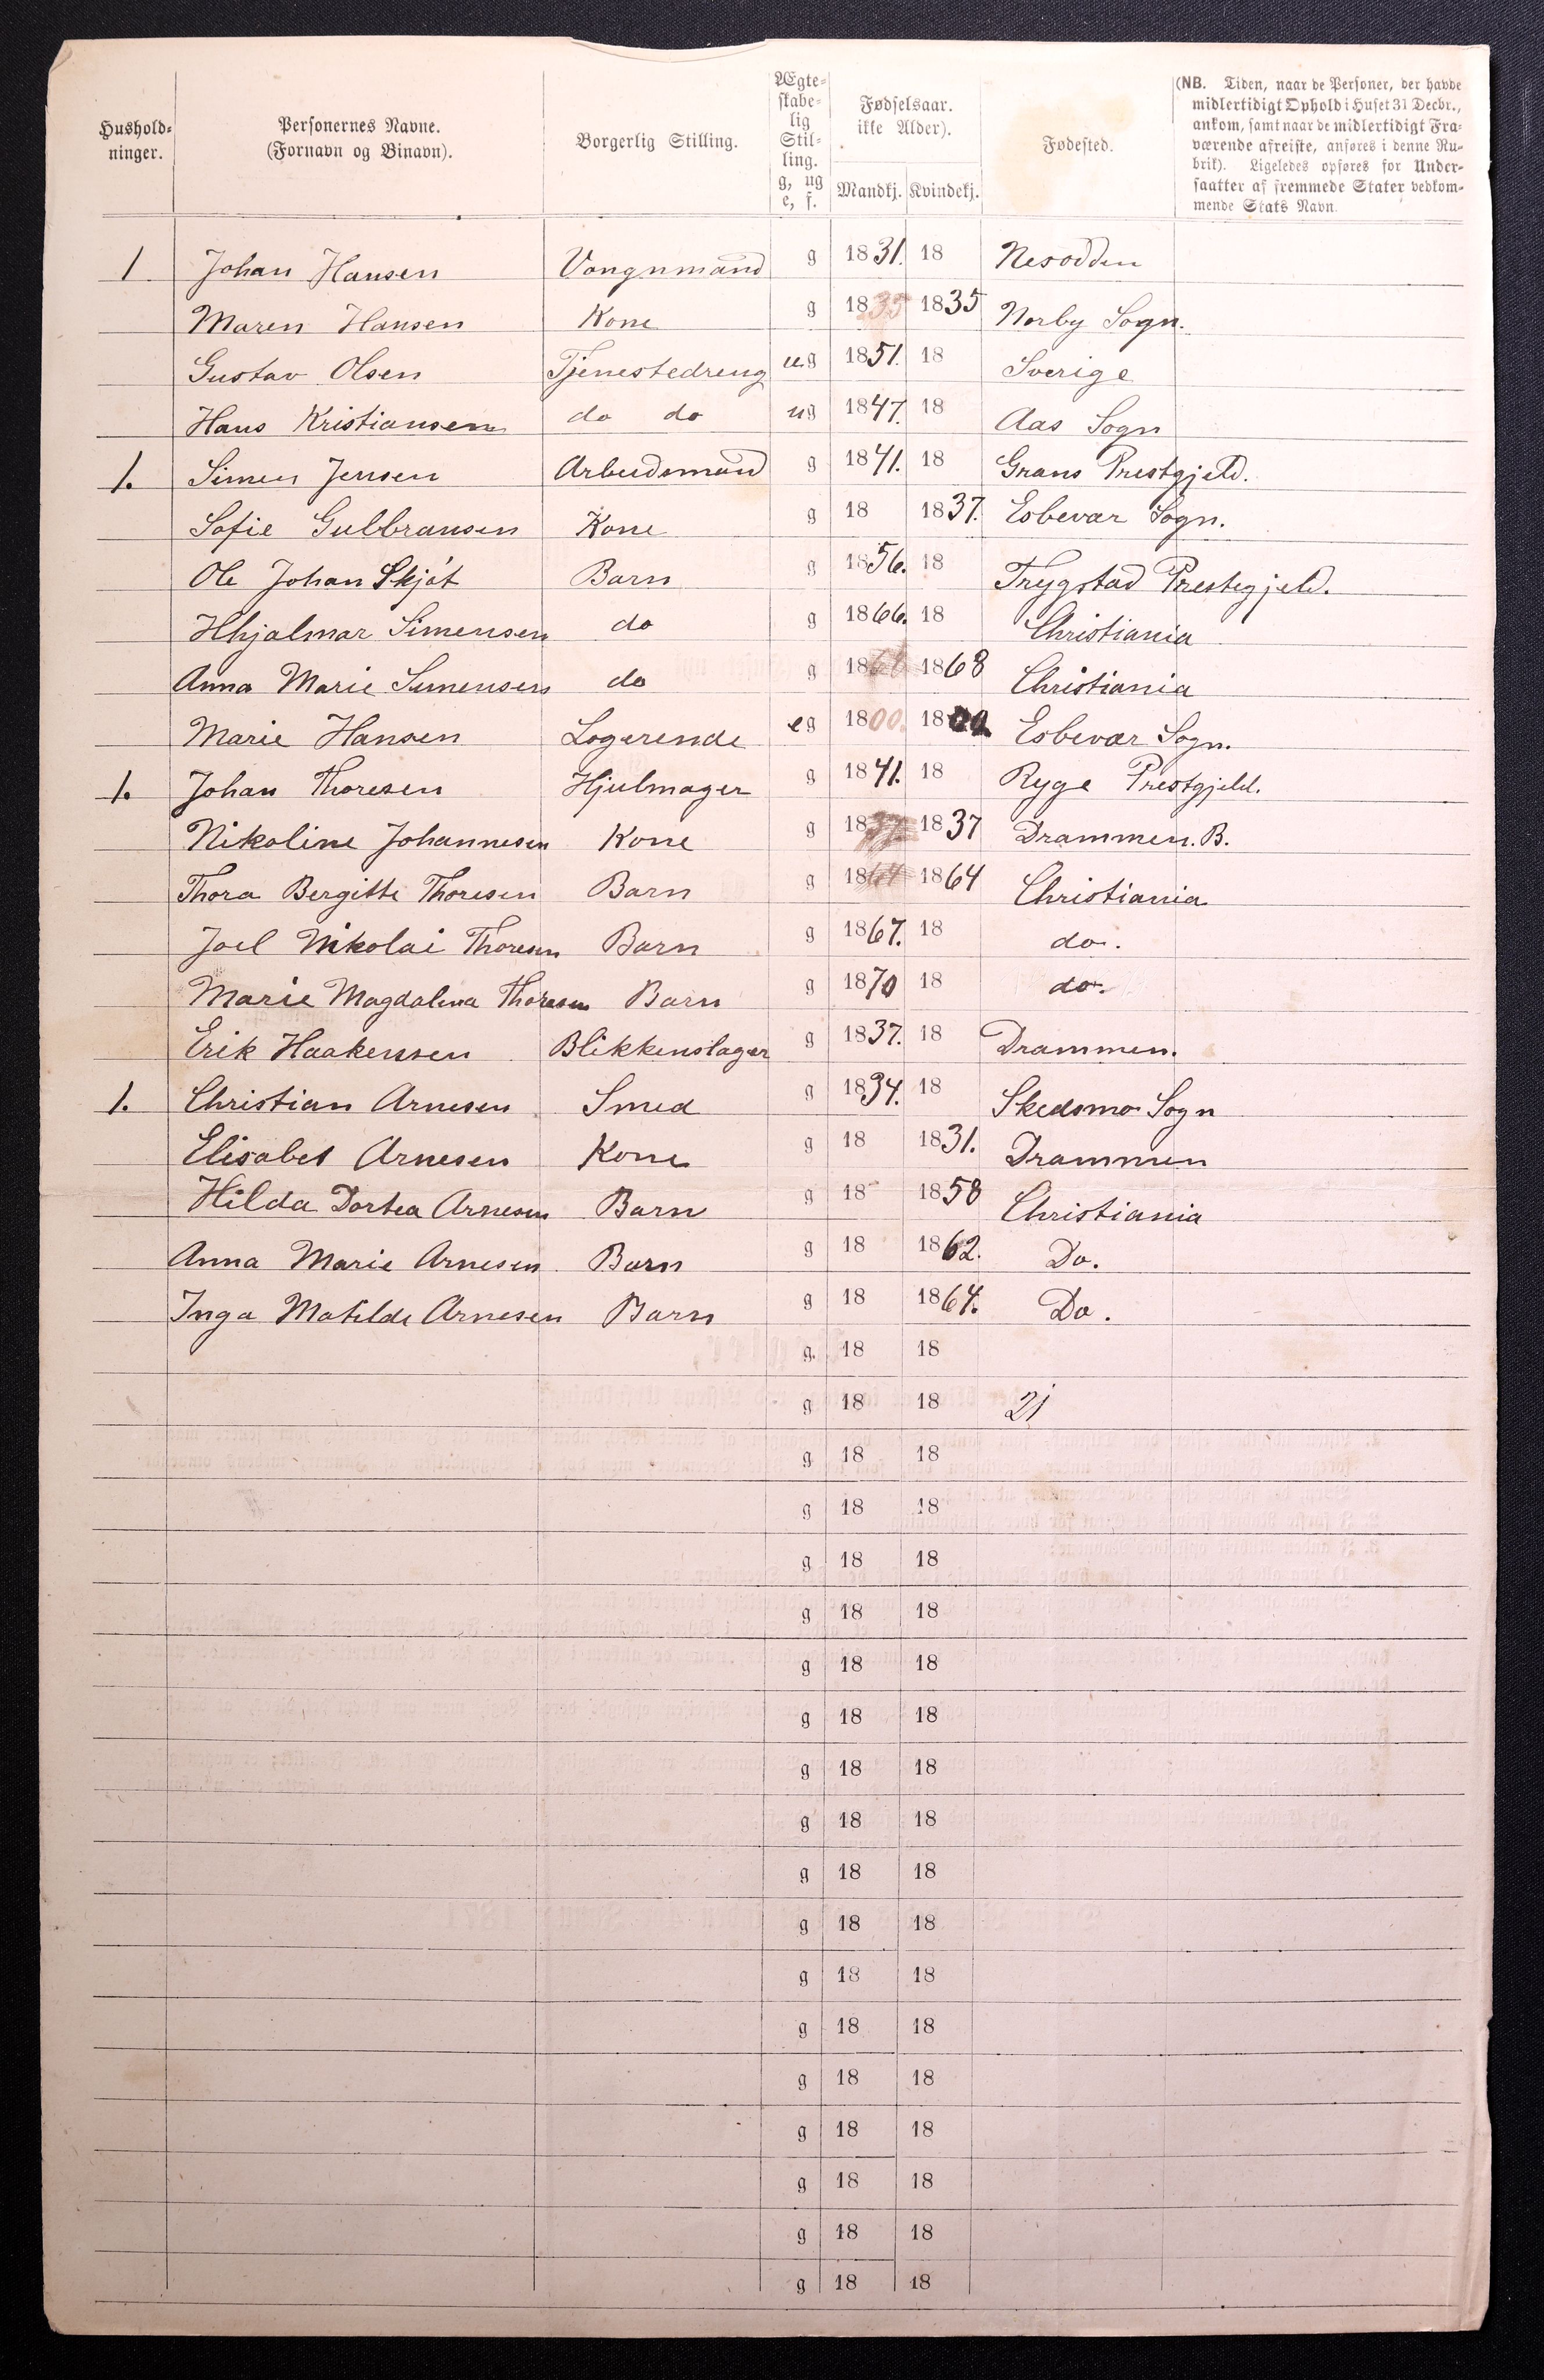 Hushold-
ninger.
Personernes Navne.
(Fornavn og Binavn).
Borgerlig Stilling.
Ægte-
skabe-
lig
Stil-
ling.
g, ug
e, f.
Fødselsaar.
ikke Alder).
Mandkj. Kvindekj.
Fødested.
(NB. Tiden, naar de Personer, der havde
midlertidigt Ophold i Huset 31 Decbr.,
ankom, samt naar de midlertidigt Fra-
værende afreiste, anføres i denne Ru-
brik). Ligeledes opføres for Under-
saatter af fremmede Stater vedkom-
mende Stats Navn.
1 Johan Hansen Vongnmand g 1831. 18 Nesodden
Maren Hansen Kone g 1835 1835 Norby Sogn.
Gustav Olsen Tjenestedreng ug 1851. 18 Sverige
Hans Kristiansen do do ug 1847. 18 Aas Sogn
1. Simen Jensen Arbeidsmand g 1841. 18 Grans Prestgjeld.
Sofie Gulbransen Kone g 18 1837. Esbevar Sogn.
Ole Johan Skjöt Barn g 1856. 18 Trygstad Prestegjeld.
Hhjalmar Simensen do g 1866. 18 Christiania
Anna Marie Simensen do g 1868 1868 Christiania
Marie Hansen Logerende eg 1800. 1800. Esbevar Sogn.
1. Johan Thoresen Hjulmager g 1841. 18 Ryge Prestgjeld.
Nikoline Johannesen Kone g 1837 1837 Drammen. B.
Thora Bergitte Thoresen Barn g 1864 1864 Christiania
Joel Nikolai Thoresen Barn g 1867. 18 do.
Marie Magdalena Thoresen Barn g 1870 18 do.
Erik Haakensen Blikkenslager g 1837. 18 Drammen.
1. Christian Arnesen Smed g 1834. 18 Skedsmo Sogn
Elisabet Arnesen Kone g 18 1831. Drammen
Hilda Dortea Arnesen Barn g 18 1858 Christiania
Anna Marie Arnesen Barn g 18 1862. Do.
Inga Matilde Arnesen Barn g 18 1864. Do.
g. 18 18
g 18 18 21
g 18 18
g 18 18
g 18 18
g 18 18
g 18 18
g 18 18
g 18 18
g 18 18
g 18 18
g 18 18
g 18 18
g 18 18
g 18 18
g 18 18
g 18 18
g 18 18
g 18 18